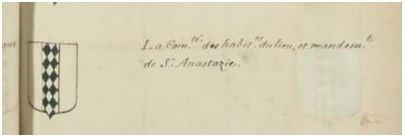 La Com.té des habit.s du lieu, et mandem.t
de S.t Anastazie.